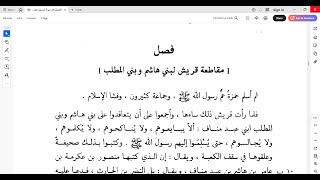 Sign in
فصل
[ مقاطعة قريش لبني هاشم وبني المطلب ]
ثم أسلم حمزة عم رسول الله ﷺ ، وجماعة كثيرون ، وفشا الإسلام .
فلما رأت قريش ذلك ساءها ، وأجمعوا على أن يتعاقدوا على بني هاشم وبني
المطلب ابني عبد مناف : ألا يبايعوهم ، ولا يناكحوهم ، ولا يكلموهم ،
ولا يجالسوهم ، حتى يُسْلِموا إليهم رسول الله ﷺ . وكتبوا بذلك صحيفة
وعلقوها في سقف الكعبة ، ويقال : إن الذي كتبها منصور بن عكرمة بن
عامر بن هاشم بن عبد مناف ، ويقال : بل النضر بن الحارث ، فدعا عليه